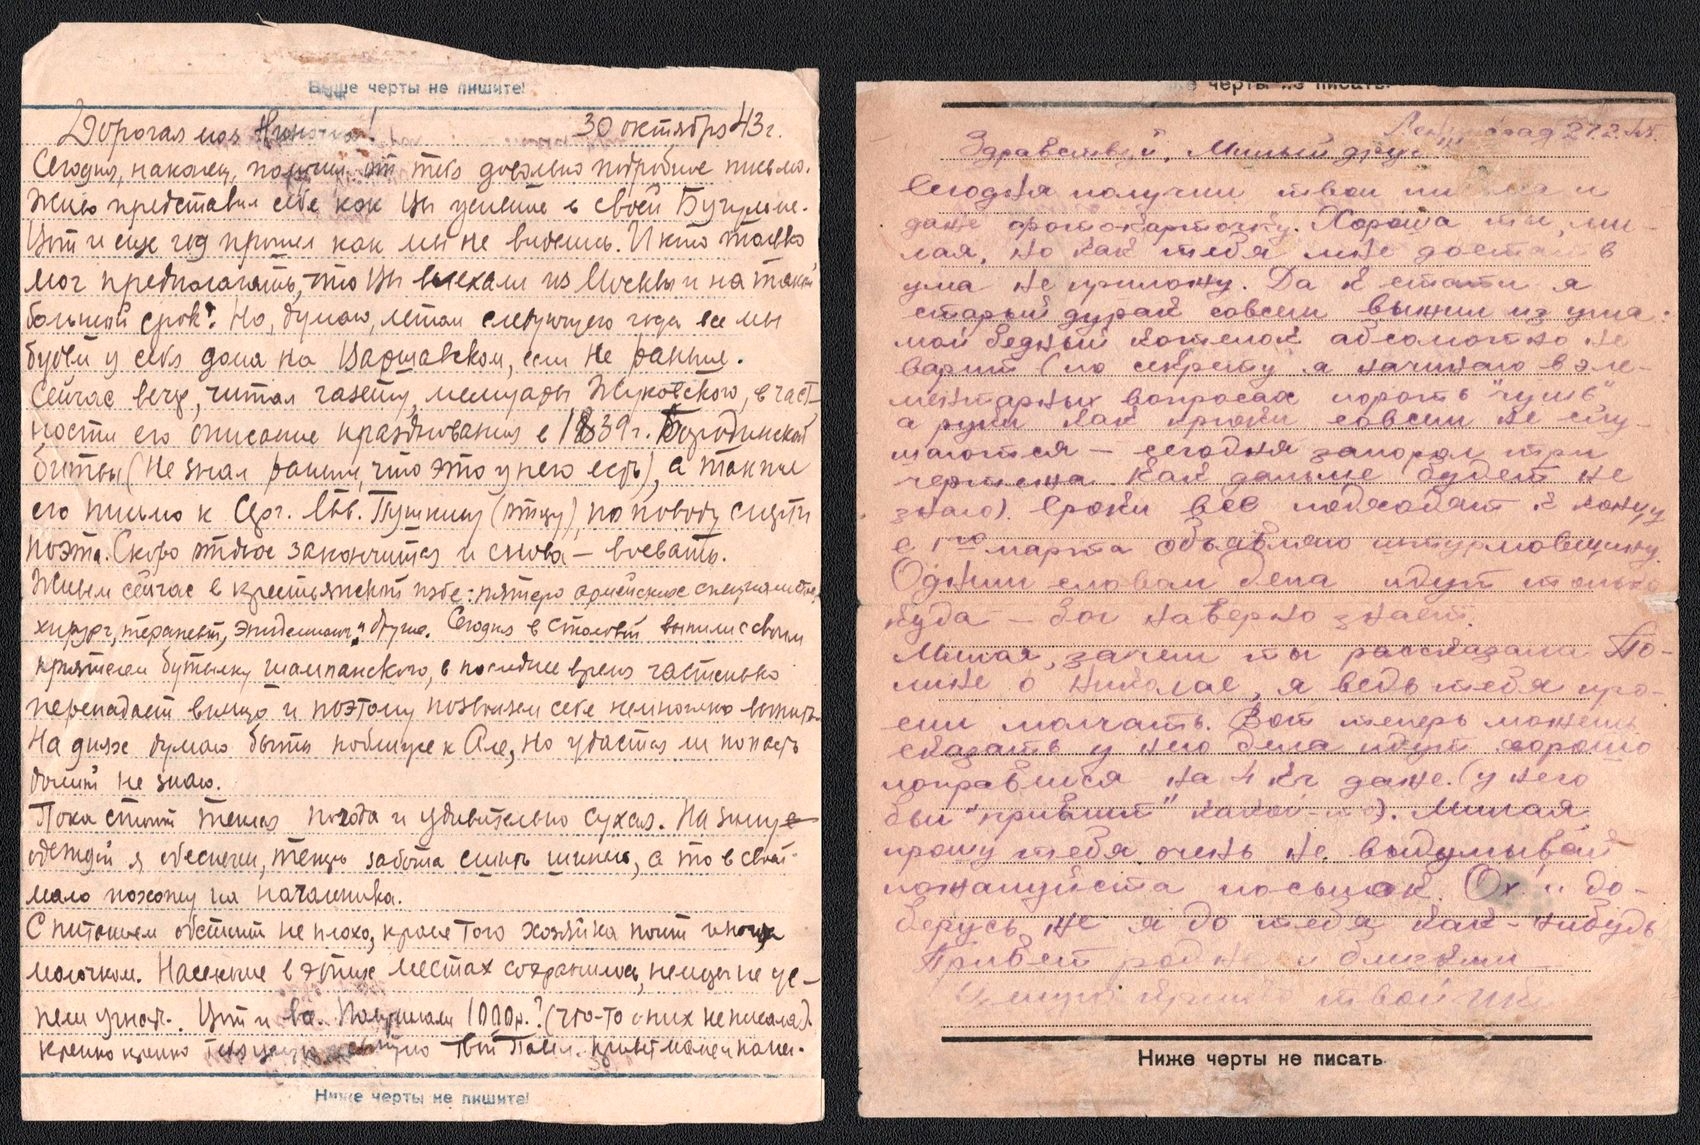 Выше черты не пишите!
Дорогая моя Ниночка! 30 октября 43 г.
Сегодня, наконец, получил от тебя довольно подробное письмо.
Живо представил себе как вы живете в своей Бугульме.
Вот и еще год прошел как мы не виделись. И кто только
мог предполагать, что вы выехали из Москвы и на такой
большой срок? Но, думаю, летом следующего года все мы
будем у себя дома на Варшавском, если не раньше.
Сейчас вечер, читал газету, мемуары Жуковского, в част-
ности его описание празднования в 1839 г. Бородинской
битвы (не знал раньше, что это у него есть), а также
его письмо к Серг. Льв. Пушкину (отцу), по поводу смерти
поэта. Скоро отдых закончится и снова – воевать.
Живем сейчас в крестьянской избе: пятеро армейских специалистов,
хирург, терапевт, эпидемиолог и другие. Сегодня в столовой выпили с своим
приятелем бутылку шампанского, в последнее время частенько
перепадает винцо и поэтому позволяем себе немножко выпить.
На днях думаю быть поближе к Але, но удастся ли попасть
домой не знаю.
Пока стоит теплая погода и удивительно сухая. На зиму
одеждой я обеспечен, теперь забота сшить шинель, а то в своей
мало похожу на начальника.
С питанием обстоит не плохо, кроме того хозяйка поит иногда
молочком. Население в этих местах сохранилось, немцы не ус-
пели угнать. Вот и все. Получили 1000 р.? (что-то о них не писала).
Крепко крепко целую твой Привет маме и папе.
Ниже черты не пишите!
Ниже черты не писать
Ленинград 27.2.
Здравствуй, милый друг
Сегодня получил твои письма и
даже фотокарточку. Хороша ты, ми-
лая, но как тебя мне достать в
ума не приложу. Да кстати я
старый дурак совсем выжил из ума:
мой бедный котелок абсолютно не
варит (по секрету я начинаю в эле-
ментарных вопросах пороть "чушь"
а руки как крюки совсем не слу-
шаются – сегодня запорол три
чертежа. Как дальше будет не
знаю). Сроки все подходят к концу
с 1го марта объявляю штурмовщину.
Одним словом дела идут только
куда – бог наверно знает.
Милая, зачем ты рассказала По-
лине о Николае, я ведь тебя про-
сил молчать. Вот теперь можешь
сказать у него дела идут хорошо
поправился на 4 кг даже. (у него
был "привит" какой-то). Милая
прошу тебя очень не выдумывай
пожалуйста посылок. Ох! и до-
берусь же я до тебя как-нибудь
Привет родным и близким
твой
Ниже черты не писать